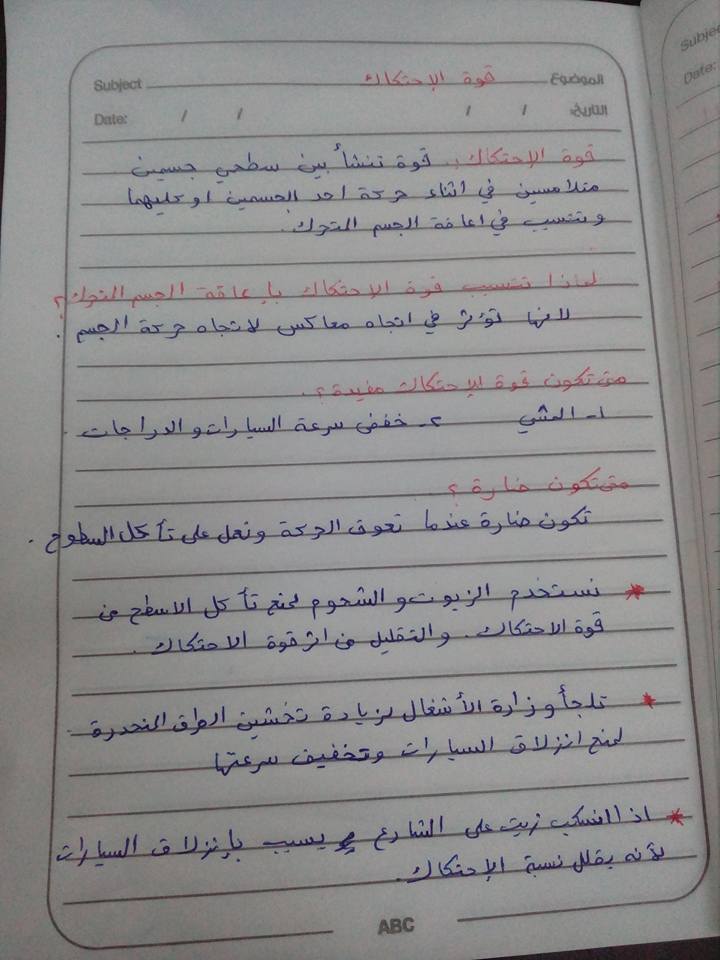 Subject قوة الإحتكاك الموضوع
Date: / / / / التاريخ
قوة الإحتكاك: قوة تنشأ بين سطحي جسمين
متلامسين في اثناء حركة احد الجسمين او كليهما
وتتسبب في اعاقة الجسم المتحرك.
لماذا تتسبب قوة الاحتكاك بإعاقة الجسم المتحرك؟
لانها تؤثر في اتجاه معاكس لاتجاه حركة الجسم.
متى تكون قوة الإحتكاك مفيدة؟
١- المشي ٢- خفض سرعة السيارات والدراجات.
متى تكون ضارة؟
تكون ضارة عندما تعوق الحركة وتعمل على تأكل السطوح.
* نستخدم الزيوت والشحوم لمنع تأكل الاسطح من
قوة الاحتكاك. والتقليل من اثر قوة الاحتكاك.
* تلجأ وزارة الأشغال لزيادة تخشين الطرق المنحدرة
لمنع انزلاق السيارات وتخفيف سرعتها
* اذا انسكب زيت على الشارع يسبب بإنزلاق السيارات
لأنه يقلل نسبة الإحتكاك.
ABC
Subject
Date: